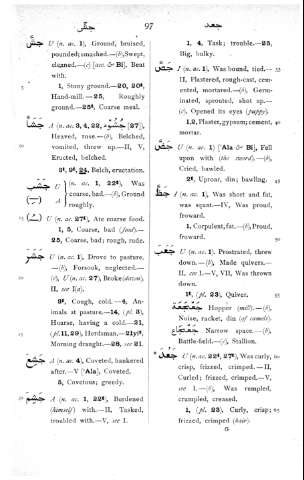 جشّ 97 جعد
جَشَّ U (n. ac. 1), Ground, bruised,
pounded; smashed.—(b), Swept,
cleaned.—(c) [acc. & Bi], Beat
with.
1, Stony ground.—20, 20ᵗ,
Hand-mill.—25, Roughly
ground.—25ᵗ, Coarse meal.
جَشَأَ A (n. ac. 3, 4, 22, [27] جُشُوْء),
Heaved, rose.—(b), Belched,
vomited, threw up.—II, V,
Eructed, belched.
3ᵗ, 9ᵗ, 24, Belch, eructation.
U (n. ac. 1, 22ᵗ), Was
coarse, bad.—(b), Ground
A roughly.
U (n. ac. 27ᵗ), Ate coarse food.
1, 5, Coarse, bad (food).—
25, Coarse, bad; rough, rude.
جَشَرَ U (n. ac. 1), Drove to pasture.
—(b), Forsook, neglected.—
(c), U (n. ac. 27), Broke (dawn).
II, see I(a).
3ᵗ, Cough, cold.—4, An-
imals at pasture.—14, (pl. 3),
Hoarse, having a cold.—21,
(pl. II, 29), Herdsman.—21yiᵗ,
Morning draught.—28, see 21.
جَشِعَ A (n. ac. 4), Coveted, hankered
after.—V ['Ala], Coveted.
5, Covetous; greedy.
جَشِمَ A (n. ac. 1, 22ᵗ), Burdened
(himself) with.—II, Tasked,
troubled with.—V, see I.
1, 4, Task; trouble.—25,
Big, bulky.
I (n. ac. 1), Was bound, tied.—
II, Plastered, rough-cast, cem-
ented, mortared.—(b), Germ-
inated, sprouted, shot up.—
(c), Opened its eyes (puppy).
1,2, Plaster, gypsum; cement,
mortar.
U (n. ac. 1) ['Ala & Bi], Fell
upon with (the sword).—(b),
Cried, bawled.
2ᵗ, Uproar, din; bawling.
I (n. ac. 1), Was short and fat,
was squat.—IV, Was proud,
froward.
1, Corpulent, fat.—(b), Proud,
froward.
جَعَبَ U (n. ac. 1), Prostrated, threw
down.—(b), Made quivers.—
II, see I.—V, VII, Was thrown
down.
1ᵗ, (pl. 23), Quiver.
جَعْجَعَة Hopper (mill).—(b),
Noise, racket, din (of camels).
جَعْجَاع Narrow space.—(b),
Battle-field.—(c), Stallion.
جَعُدَ U (n. ac. 22ᵗ, 27ᵗ), Was curly,
crisp, frizzed, crimped.—II,
Curled; frizzed, crimped.—V,
see I.—(b), Was rempled,
crumpled, creased.
1, (pl. 23), Curly, crisp;
frizzed, crimped (hair).
G